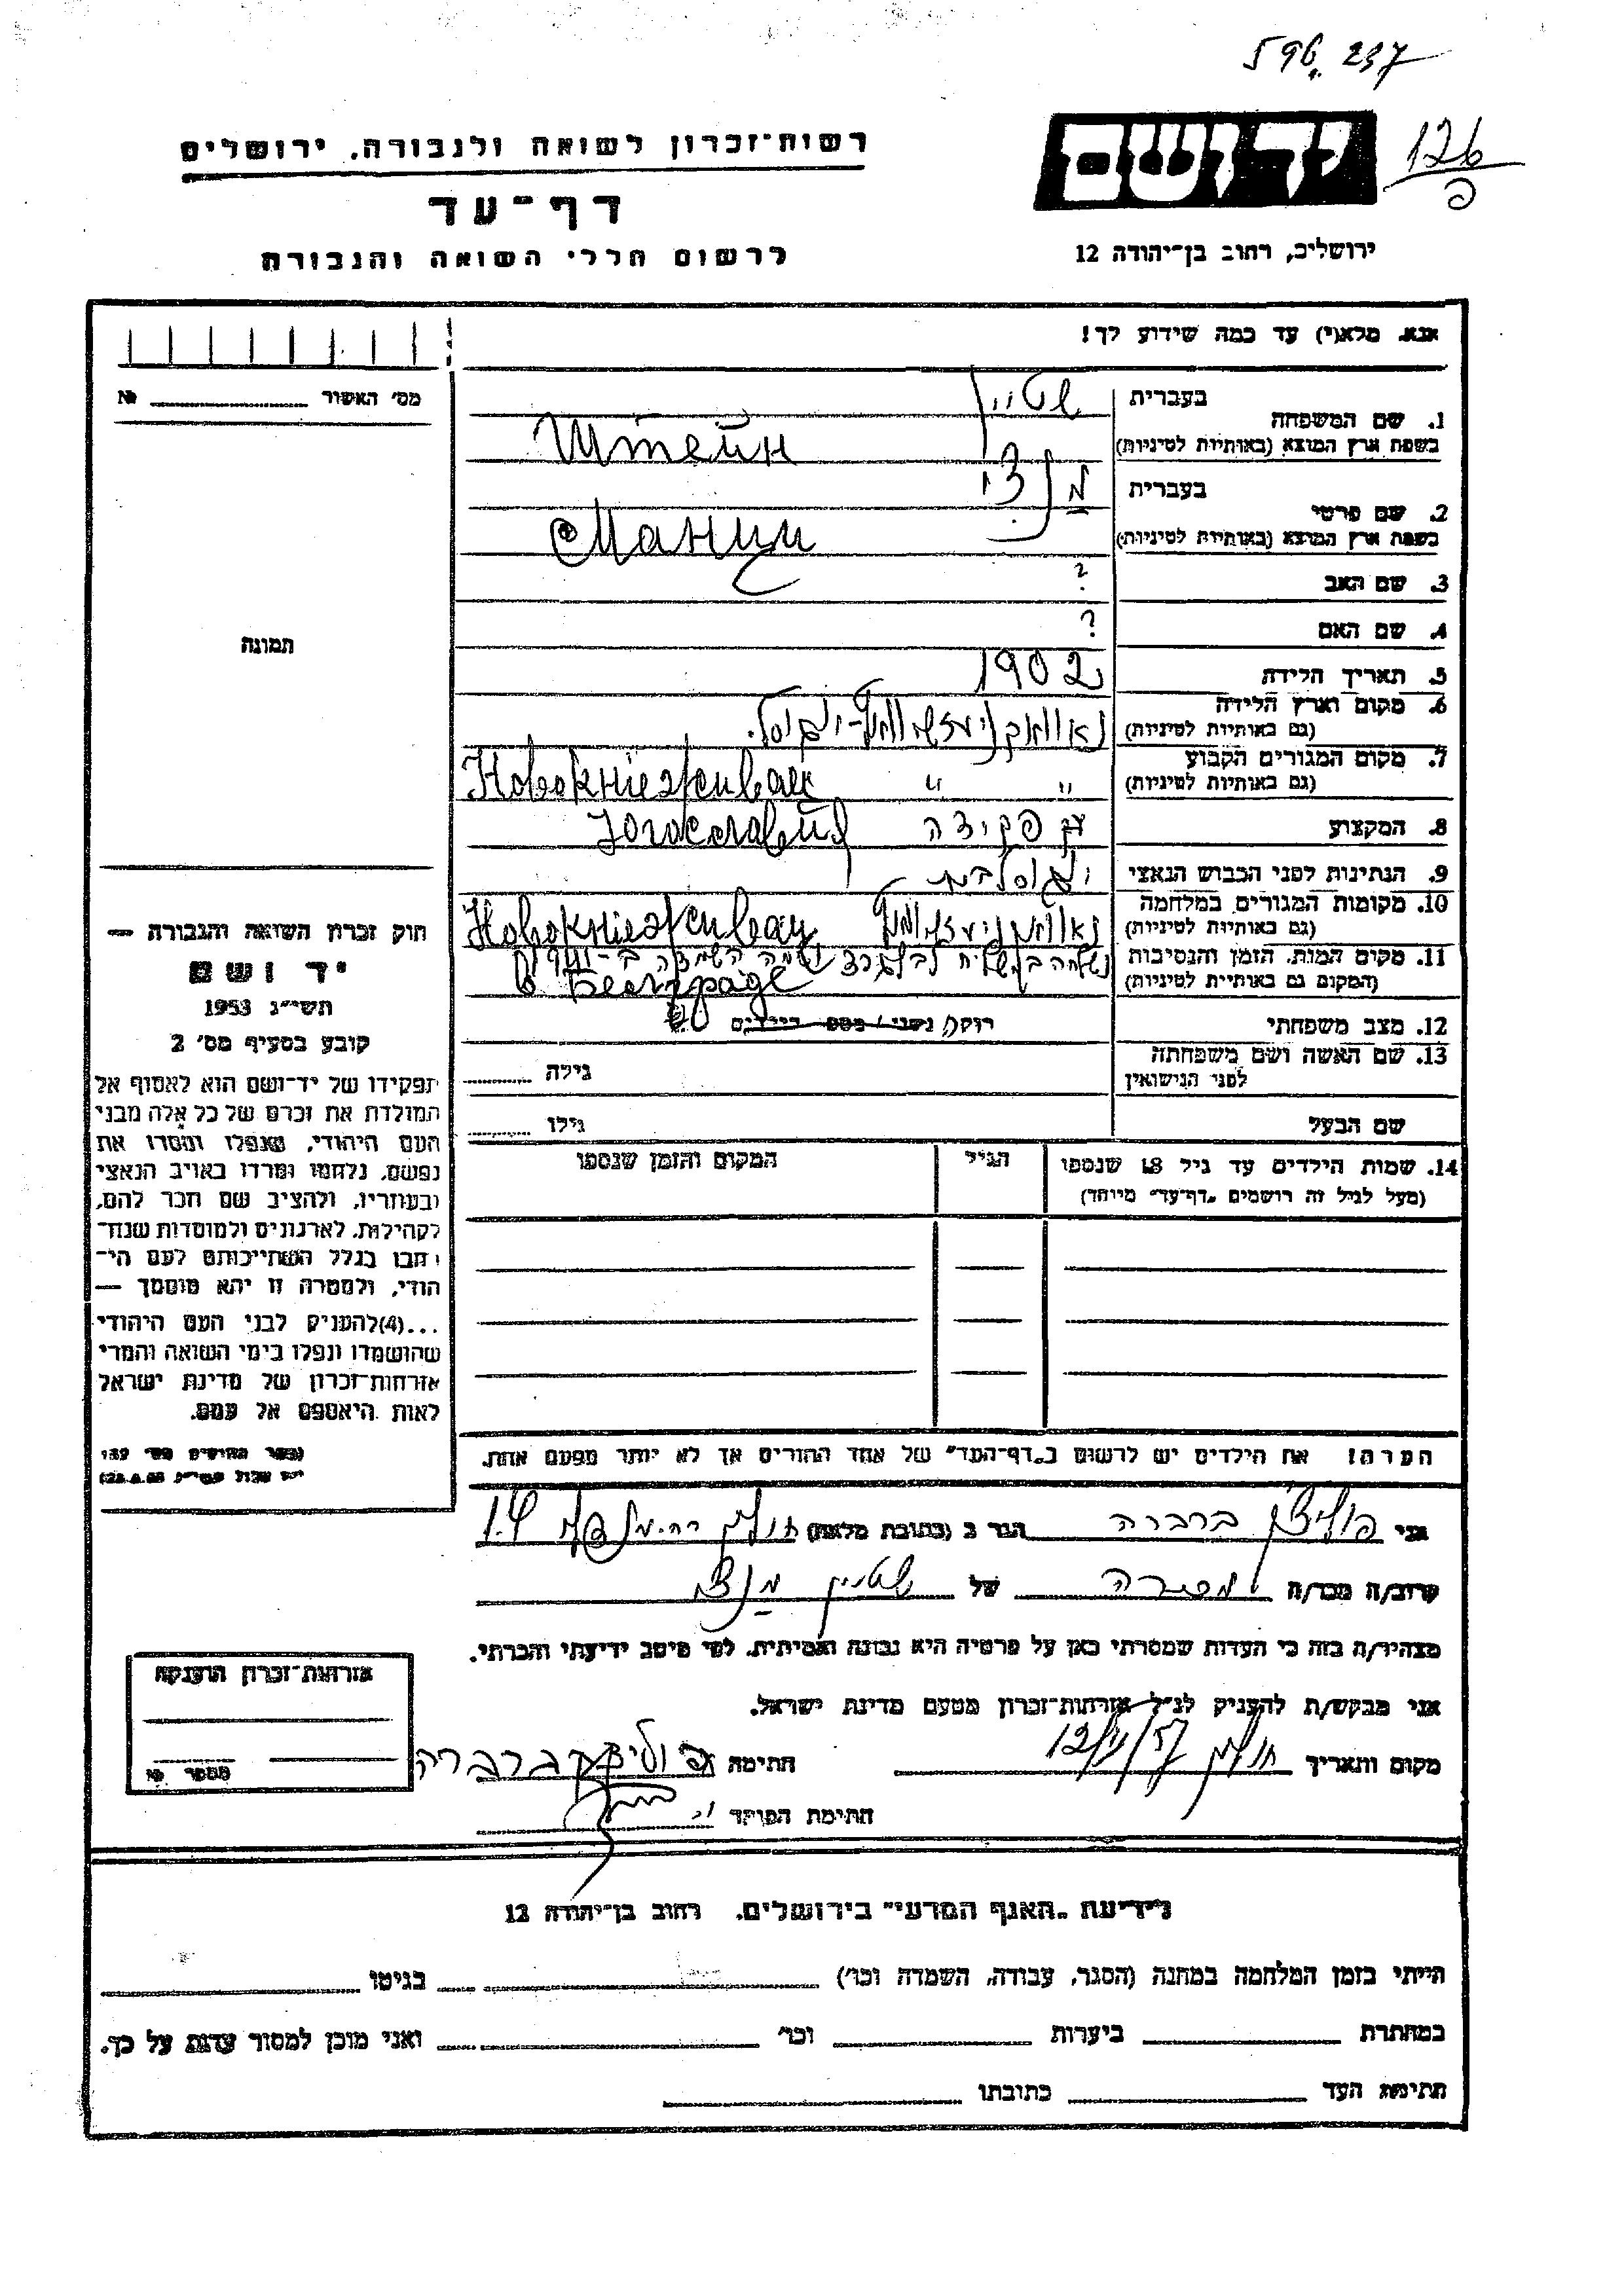 596.237
126
יד ושם
רשות־זכרון לשואה ולגבורה, ירושלים
דף־עד
לרשום חללי השואה והגבורה
ירושלים, רחוב בן־יהודה 12
אנא, מלא(י) עד כמה שידוע לך!
מס' האשור
№
1. שם המשפחה
בעברית
שטיין
בשפת ארץ המוצא (באותיות לטיניות)
Штейн
2. שם פרטי
בעברית
מנצי
בשפת ארץ המוצא (באותיות לטיניות)
Манци
3. שם האב
?
4. שם האם
?
5. תאריך הלידה
1902
6. מקום וארץ הלידה
(גם באותיות לטיניות)
7. מקום המגורים הקבוע
(גם באותיות לטיניות)
" "
8. המקצוע
פקידה
9. הנתינות לפני הכבוש הנאצי
10. מקומות המגורים במלחמה
(גם באותיות לטיניות)
11. מקום המות, הזמן והנסיבות
(המקום גם באותיות לטיניות)
12. מצב משפחתי
רווק/ נשוי/ מספר הילדים
13. שם האשה ושם משפחתה
לפני הנישואין
גילה
שם הבעל
גילו
14. שמות הילדים עד גיל 18 שנספו
(מעל לגיל זה רושמים "דף־עד" מיוחד)
הגיל
המקום והזמן שנספו
הערה! את הילדים יש לרשום ב"דף־העד" של אחד ההורים אך לא יותר מפעם אחת.
תמונה
חוק זכרון השואה והגבורה —
יד ושם
תשי"ג 1953
קובע בסעיף מס' 2
תפקידו של יד־ושם הוא לאסוף אל
המולדת את זכרם של כל אלה מבני
העם היהודי, שנפלו ומסרו את
נפשם, נלחמו ומרדו באויב הנאצי
ובעוזריו, ולהציב שם וזכר להם,
לקהילות, לארגונים ולמוסדות שנח־
רבו בגלל השתייכותם לעם הי־
הודי, ולמטרה זו יהא מוסמך —
...(4) להעניק לבני העם היהודי
שהושמדו ונפלו בימי השואה והמרי
אזרחות־זכרון של מדינת ישראל
לאות היאספם אל עמם.
אני ברברה הגר ב (כתובת מלאה) חולון
קרוב/ה מכר/ה מכירה של שטיין מנצי
מצהיר/ה בזה כי העדות שמסרתי כאן על פרטיה היא נכונה ואמיתית, לפי מיטב ידיעתי והכרתי.
אני מבקש/ת להעניק לנ"ל אזרחות־זכרון מטעם מדינת ישראל.
מקום ותאריך חולון חתימה ברברה
חתימת הפוקד
אזרחות־זכרון הוענקה
מספר
לידיעת "האגף המדעי" בירושלים, רחוב בן־יהודה 12
הייתי בזמן המלחמה במחנה (הסגר, עבודה, השמדה וכו') בגיטו
במחתרת ביערות וכו' ואני מוכן למסור עדות על כך.
חתימת העד כתובתו